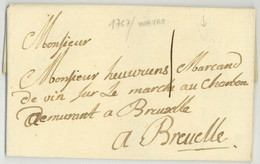 1787/
Monsieur
Monsieur heuvruens Marcand
de vin sur Le marche au Charbon
demeurant a Bruxelle
a Breuelle